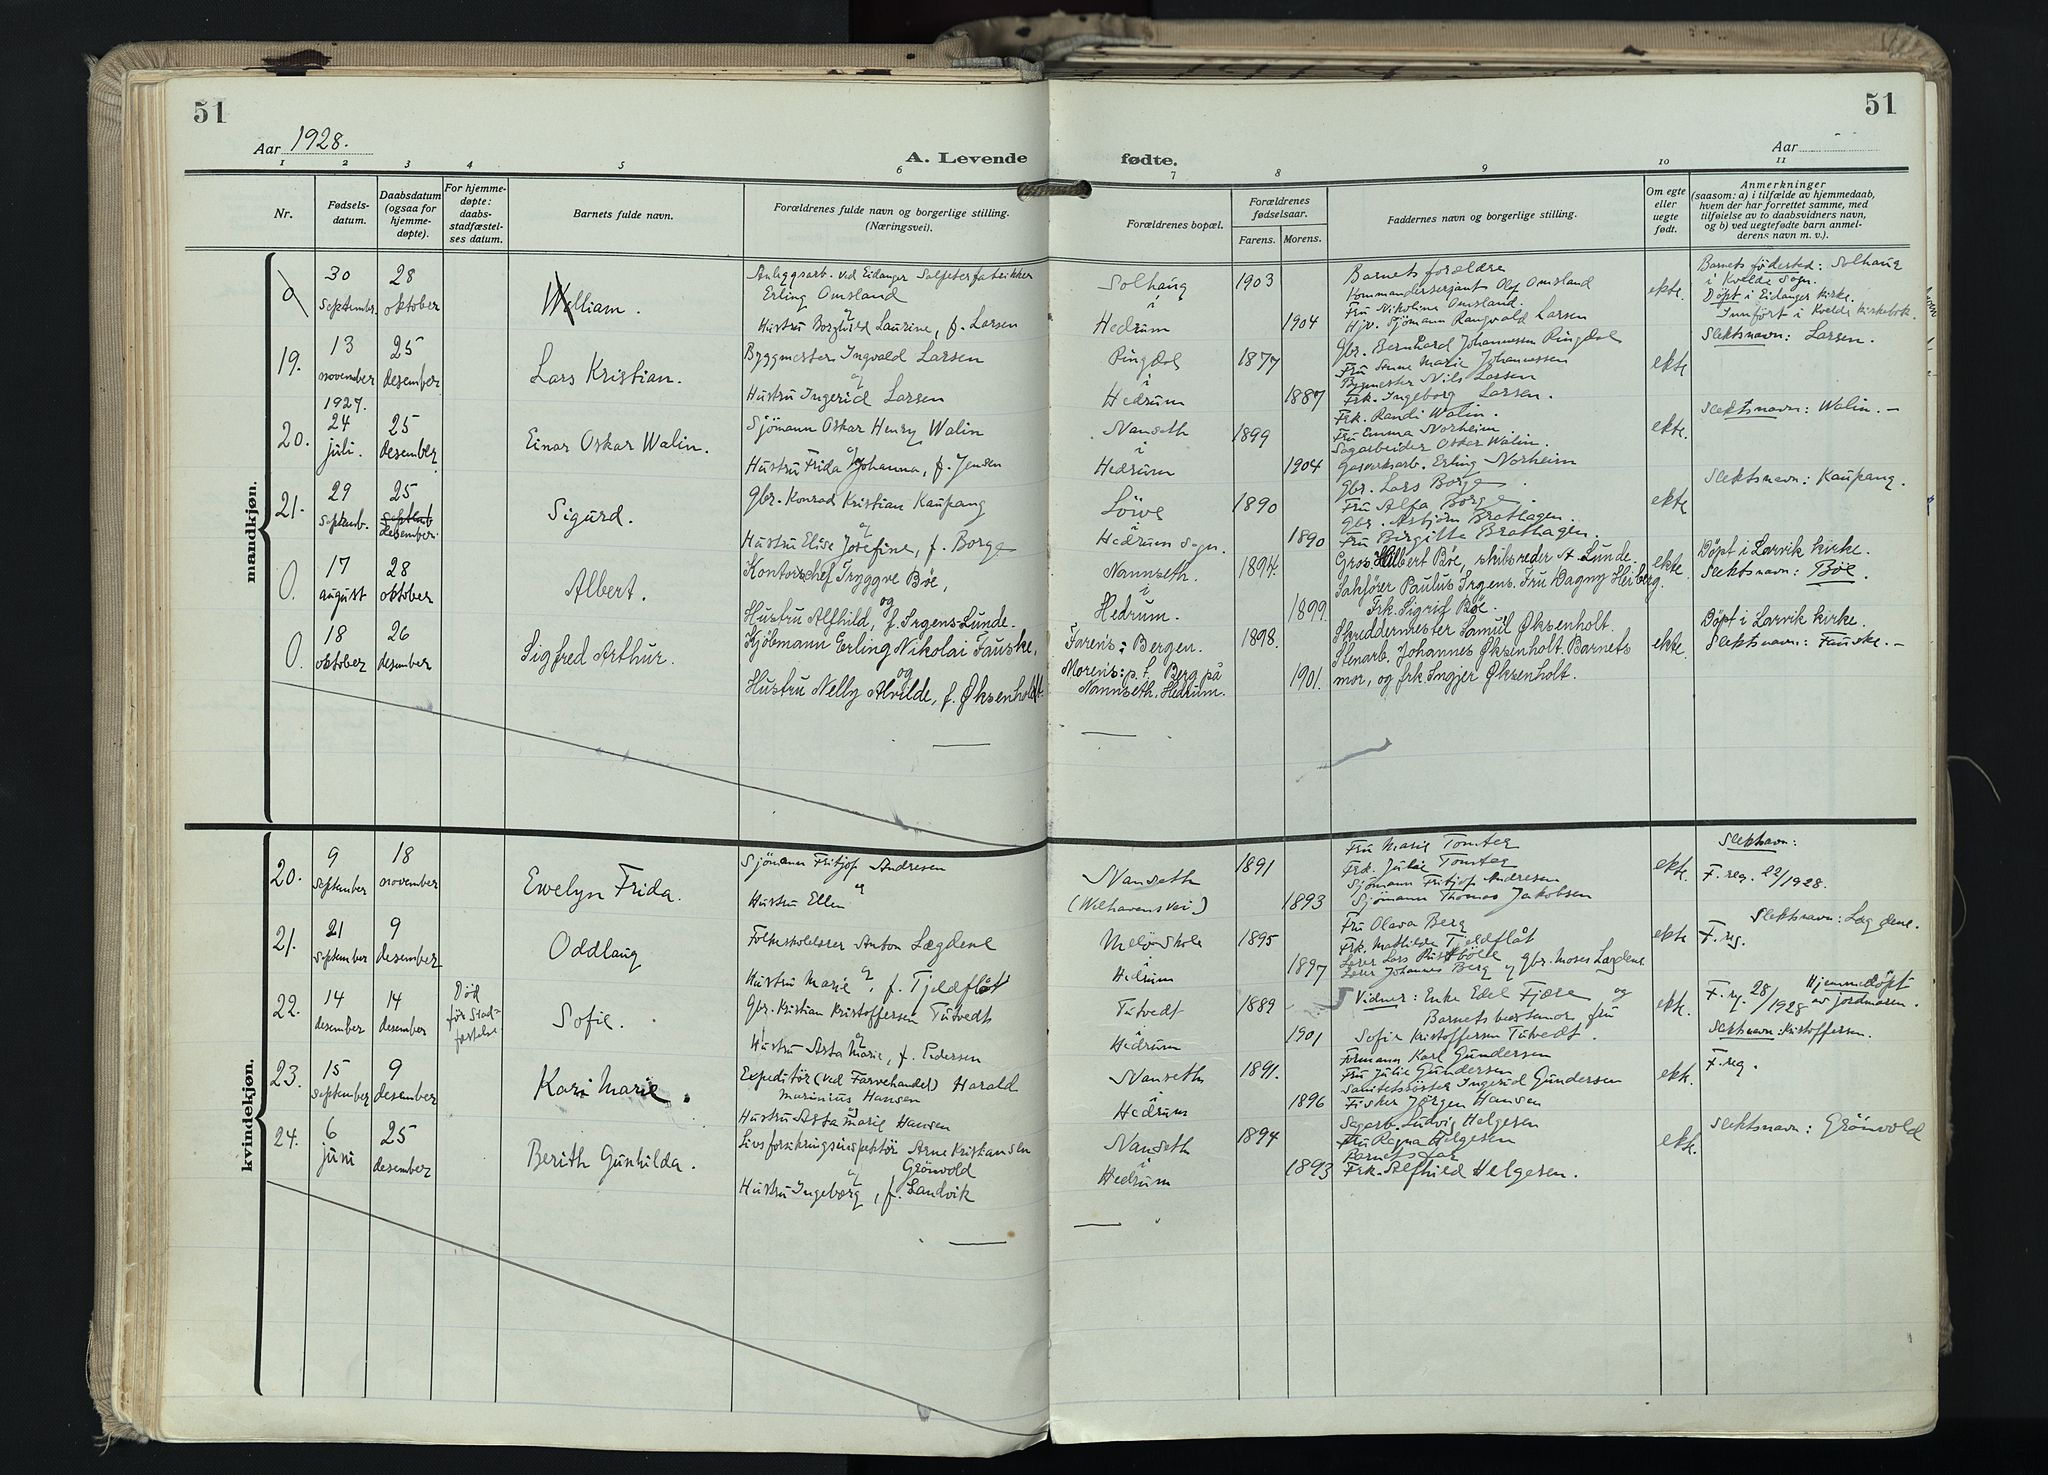 51
51
Aar 1928.
A. Levende fødte.
Aar
1 2 3 4 5 6 7 8 9 10 11
Nr.
Fødsels-
datum.
Daabsdatum
(ogsaa for
hjemme-
døpte).
For hjemme-
døpte:
daabs-
stadfæstel-
ses datum.
Barnets fulde navn.
Forældrenes fulde navn og borgerlige stilling.
(Næringsvei).
Forældrenes bopæl.
Forældrenes
fødselsaar.
Farens. Morens.
Faddernes navn og borgerlige stilling.
Om egte
eller
uegte
født.
Anmerkninger
(saasom: a) i tilfælde av hjemmedaab,
hvem der har forrettet samme, med
tilføielse av to daabsvidners navn,
og b) ved uegtefødte barn anmel-
derens navn m. v.).
mandkjøn.
0
30
september
28
oktober
William.
Anleggsarb. ved Eidanger Salpeterfabrikker
Erling Omsland
og
Hustru Borghild Laurine, f. Larsen
Solhaug
i
Hedrum
1903
1904
Barnets forældre
Kommandersersjant Olef Omsland
Fru Nikoline Omsland.
Hjv. Sjömann Rangvald Larsen
ekte.
Barnets fødested: Solhaug
i Kvelde Sogn.
Döpt i Eidanger kirke.
Innfört i Kvelde kirkebok.
19.
13
november
25
desember
Lars Kristian.
Byggmester Ingvald Larsen
og
Hustru Ingerid Larsen
Ringdal
i
Hedrum
1877
1887
Gbr. Bernhard Johannessen Ringdal
Fru Anne Marie Johannessen
Bygmester Nils Larsen
Frk. Ingeborg Larsen.
ekte
Slektsnavn: Larsen.
20.
1927.
24
juli.
25
desember
Einar Oskar Walin.
Sjömann Oskar Henry Walin
og
Hustru Frida Johanna, f. Jensen
Nanseth
i
Hedrum
1899
1904
Frk. Randi Walin.
Fru Emma Norheim.
Sagarbeider Oskar Walin.
Gasverksarb. Erling Norheim
ekte.
Slektsnavn: Walin. -
21.
29
septemb.
25
septemb.
desember.
Sigurd.
Gbr. Konrad Kristian Kaupang
og
Hustru Elise Josefine, f. Borge
Löve
i
Hedrum sogn.
1890
1890
Gbr. Lars Borge
Fru Alfa Borge.
Gbr. Asbjörn Brathagen.
Fru Birgitte Brathagen.
ekte
Slektsnavn: Kaupang.
0.
17
august
28
oktober
Albert.
Kontorchef Tryggve Bøe,
og
Hustru Alfhild, f. Irgens-Lunde.
Nannseth.
i
Hedrum.
1894.
1899.
Gros. Hilbert Bøe, skibsreder A. Lunde.
Sakfører Paulus Irgens. Fru Dagny Heiberg.
Frk. Sigrid Bøe.
ekte.
Døpt i Larvik kirke.
Slektsnavn: Bøe.
0.
18
oktober
26
desember
Sigfred Arthur.
Kjøbmann Erling Nikolai Fauske,
og
Hustru Nelly Alvilde, f. Øksenholdt.
Farens: Bergen.
Morens: p. t. Berg på
Nannseth, Hedrum.
1898.
1901.
Skreddermester Samuel Øksenholt.
Stenarb. Johannes Øksenholt. Barnets
mor, og frk Ingjer Øksenholt.
ekte.
Døpt i Larvik kirke.
Slektsnavn: Fauske. -
kvindekjøn.
20.
9
september
18
november
Ewelyn Frida.
Sjömann Fritjof Andresen
og
Hustru Ellen
Nanseth
(Welhavensvei)
1891
1893
Fru Marie Tomter
Frk. Julie Tomter
Sjömann Fritjof Andresen
Sjömann Thomas Jakobsen
ekte.
Slektnavn:
F. reg. 22/1928.
21.
21
september
9
desember
Oddlaug
Folkeskolelærer Anton Lægdene
og
Hustru Marie, f. Tjeldflåt
Melöyskole
i
Hedrum
1895
1897
Fru Olava Berg
Frk. Mathilde Tjeldflåt
Lærer Johannes Berg og Gbr. Moses Lægdene
ekte
Slektsnavn: Lægdene.
F. reg.
22.
14
desember
14
desember
Död
før Stad-
festelse
Sofie.
Gbr. Kristian Kristoffersen Tutvedt
og
Hustru Asta Marie, f. Pedersen
Tutvedt
i
Hedrum
1889
1901
Vidner: Enke Edel Fjære og
Barnets bestemor fru
Sofie Kristoffersen Tutvedt.
ekte.
F. reg. 28/1928
Hjemmedöpt
av jordmoren.
Slektnavn: Kristoffersen.
23.
15
september
9
desember
Kari Marie.
Expeditör (ved Farvehandel) Harald
Marinius Hansen
og
Hustru Asta Marie Hansen
Nanseth
i
Hedrum
1891.
1896
Formann Karl Gundersen
Fru Julie Gundersen
Sanitetssöster Ingerid Gundersen
Fisker Jörgen Hansen
ekte.
F. reg.
24.
6
juni
25
desember
Berith Gunhilda.
Livsforsikringsinspektör Arne Kristiansen
Grönvold
og
Hustru Ingeborg, f. Landvik
Nanseth
i
Hedrum
1894
1893
Sagarb. Ludvig Helgesen
Fru Ragna Helgesen
Barnets far
Frk. Alfhild Helgesen.
ekte.
Slektsnavn: Grönvold